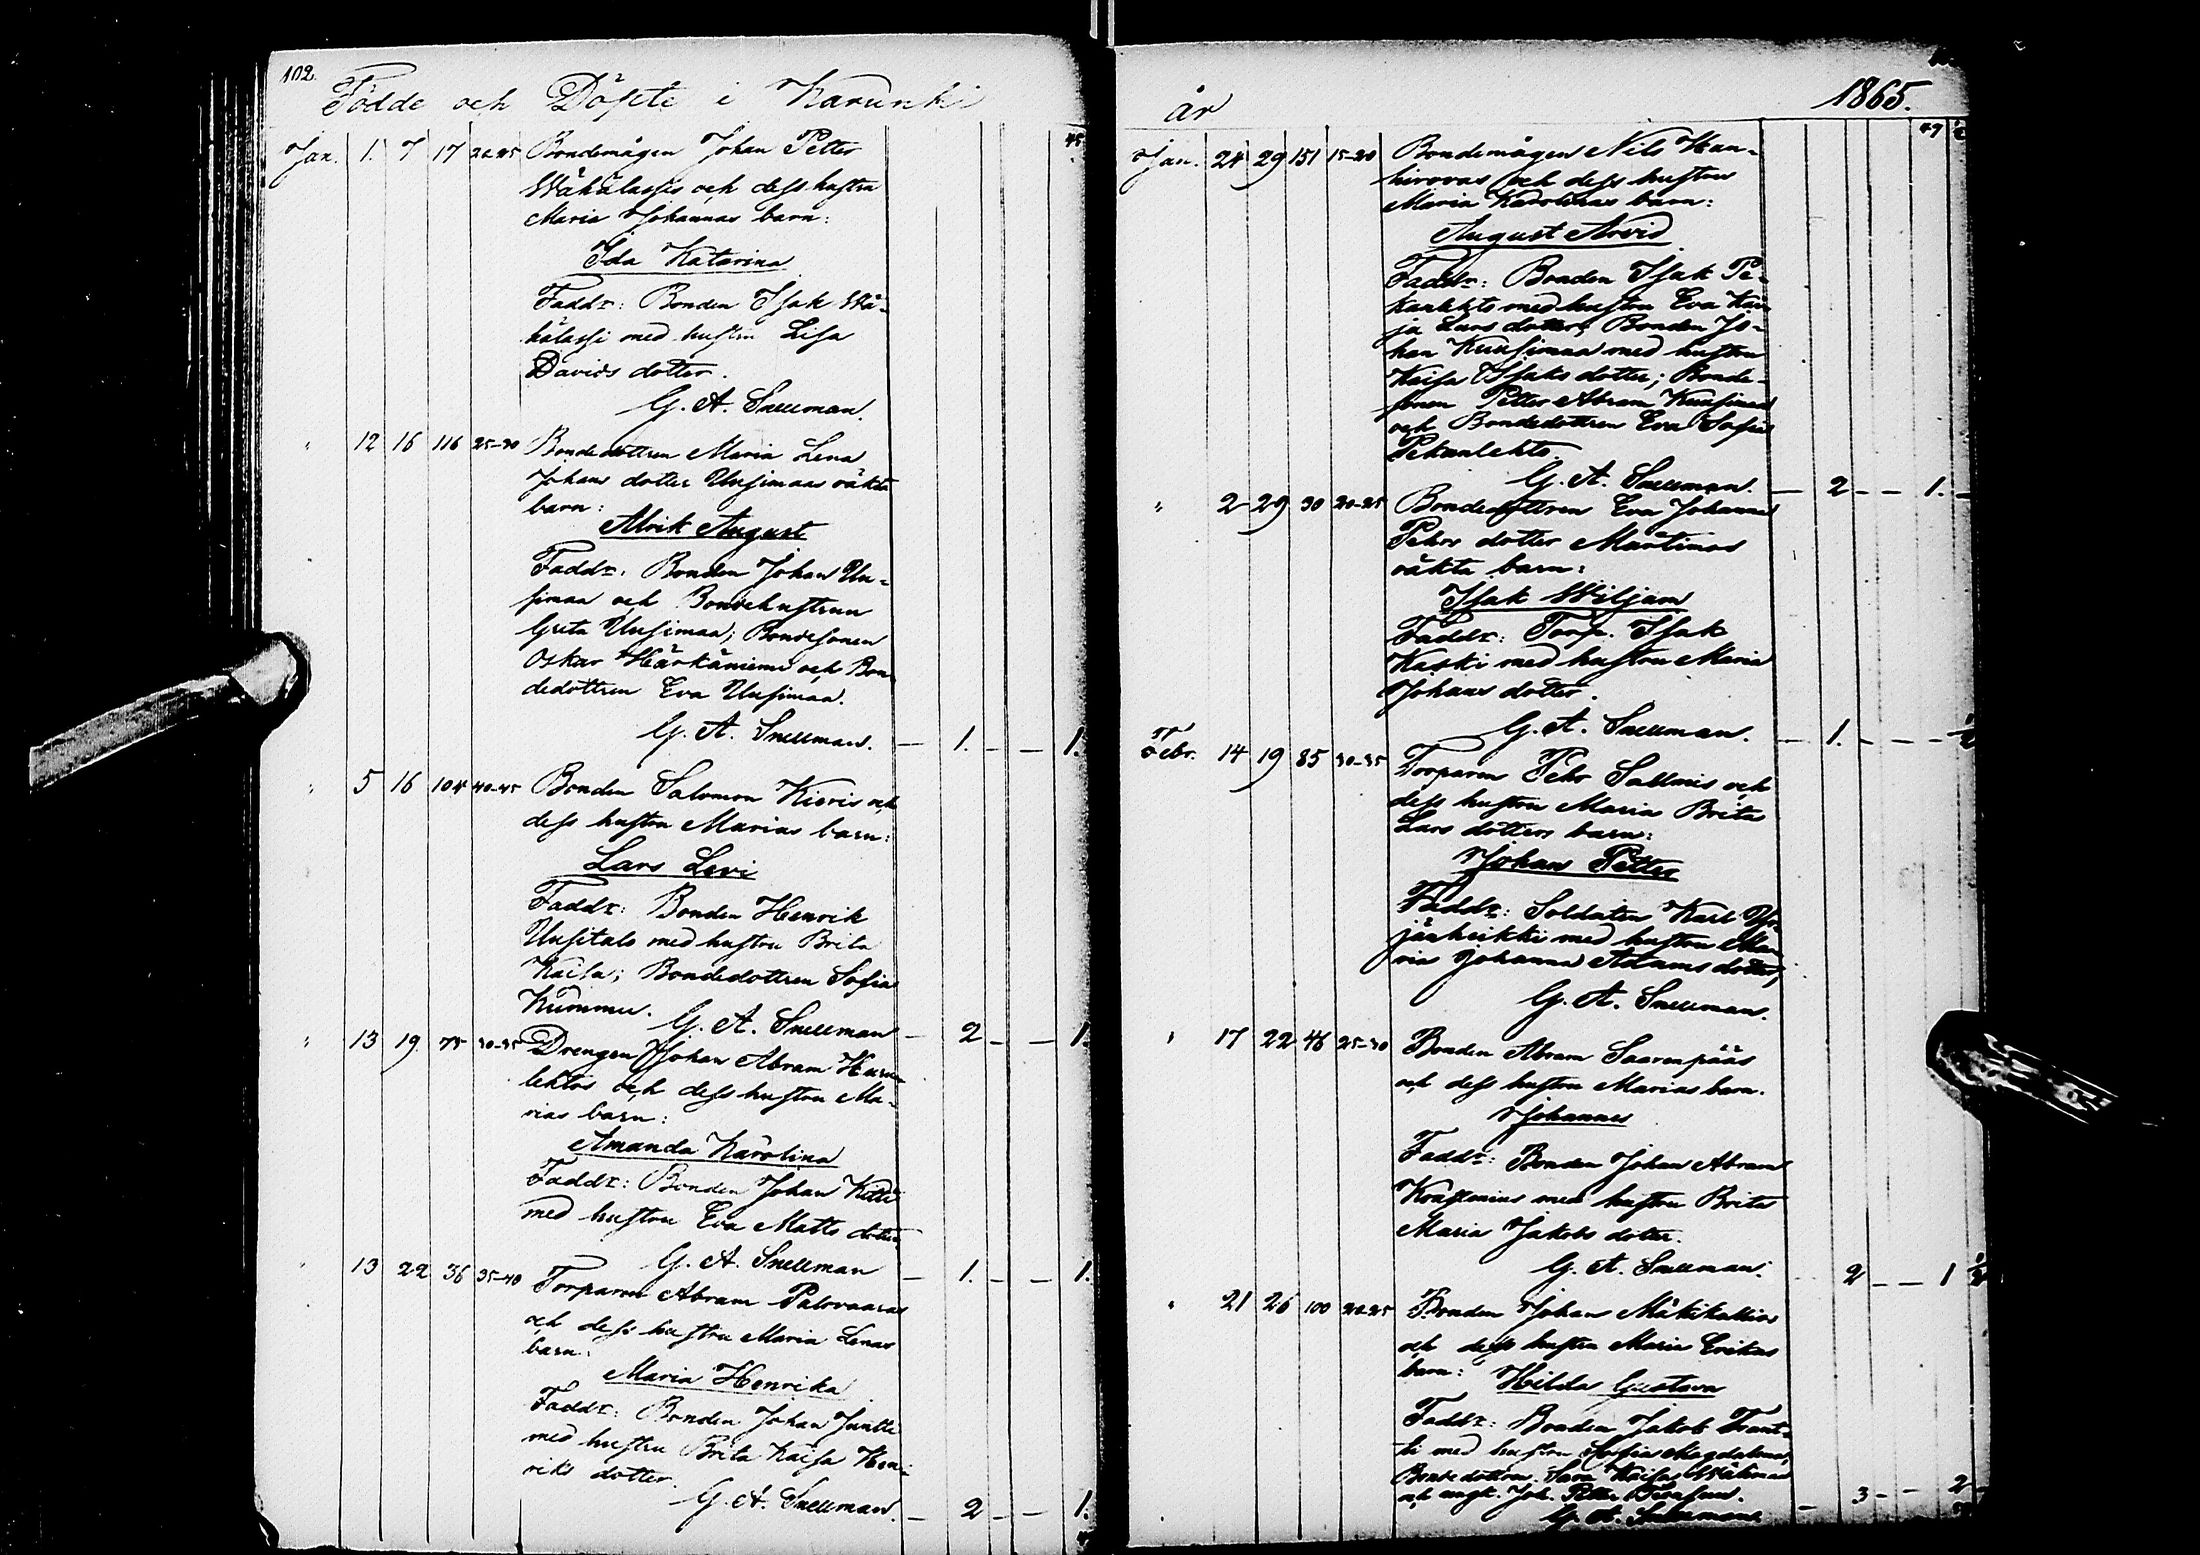 102.
Födde och Döpte i Karunki
45
Jan. 1. 7 17 20-25 Bondemågen Johan Petter
Wähälassis och dess hustru
Maria Johannas barn:
Ida Katarina
Faddr: Bonden Isak Wä-
hälassi med hustru Lisa
Davids dotter.
G. A. Snellman.
" 12 16 116 25-30 Bondedottren Maria Lena
Johans dotter Uusimaas oäkta
barn:
Alrik August
Faddr: Bonden Johan Uu-
simaa och Bondehustrun
Greta Uusimaa; Bondesonen
Oskar Härkäniemi och Bon-
dedottren Eva Uusimaa.
G. A. Snellman. — 1. — — 1.
" 5 16 104 40-45 Bonden Salomon Kieris och
dess hustru Marias barn:
Lars Levi
Faddr: Bonden Henrik
Uusitalo med hustru Brita
Kaisa; Bondedottren Sofia
Kummu.
G. A. Snellman — 2 — — 1.
" 13 19. 75 30-35 Drengen Johan Abram
lehtos och dess hustru Ma-
rias barn:
Amanda Karolina
Faddr: Bonden Johan Kitti
med hustru Eva Matts dotter.
G. A. Snellman — 1. — — 1.
" 13 22 36 35-40 Torparen Abram Palovaaras
och dess hustru Maria Lenas
barn:
Maria Henrika
Faddr: Bonden Johan Juntti
med hustru Brita Kaisa Hen-
riks dotter.
G. A. Snellman. — 2 — — 1.
år 1865.
47
Jan. 24 29 151 15-20 Bondemågen Nils Han-
hirovas och dess hustrus
Maria Karolinas barn:
August Arvid
Faddr: Bonden Isak Pe-
kanlehto med hustru Eva Kai-
ja Lars dotter; Bonden Jo-
han Kuusimaa med hustru
Kaisa Isaks dotter; Bonde-
sonen Petter Abram Kuusimaa
och Bondedottren Eva Sofia
Pekanlehto.
G. A. Snellman. — 2 — — 1. —
" 2 29 30 20-25 Bondedottren Eva Johanna
Pehrs dotter Martimos
oäkta barn:
Isak Wiljam
Faddr: Torp. Isak
Kaski med hustru Maria
Johans dotter.
G. A. Snellman. — 1. — — — ½
Febr. 14 19 85 30-35 Torparen Pehr Sallinis och
dess hustru Maria Brita
Lars dotters barn:
Johan Petter
Faddr: Soldaten Karl
jänheikki med hustru Ma-
ria Johanna Adams dotter;
G. A. Snellman.
" 17 22 46 25-30 Bonden Abram Saarenpääs
och dess hustru Marias barn.
Johannes
Faddr: Bonden Johan Abram
med hustru Brita
Maria Jakobs dotter.
G. A. Snellman. — 2 — — 1 ½
" 21 26 100 20-25 Bonden Johan Mäkikallios
och dess hustru Maria Erikas
barn: Hilda Gustava
Faddr: Bonden Jakob Fant-
ti med hustru Sofia Magdalena,
Bondedottren Sara Kaisa
och yngl. Joh. Petter
G. A. Snellman — 3 — — 2 —